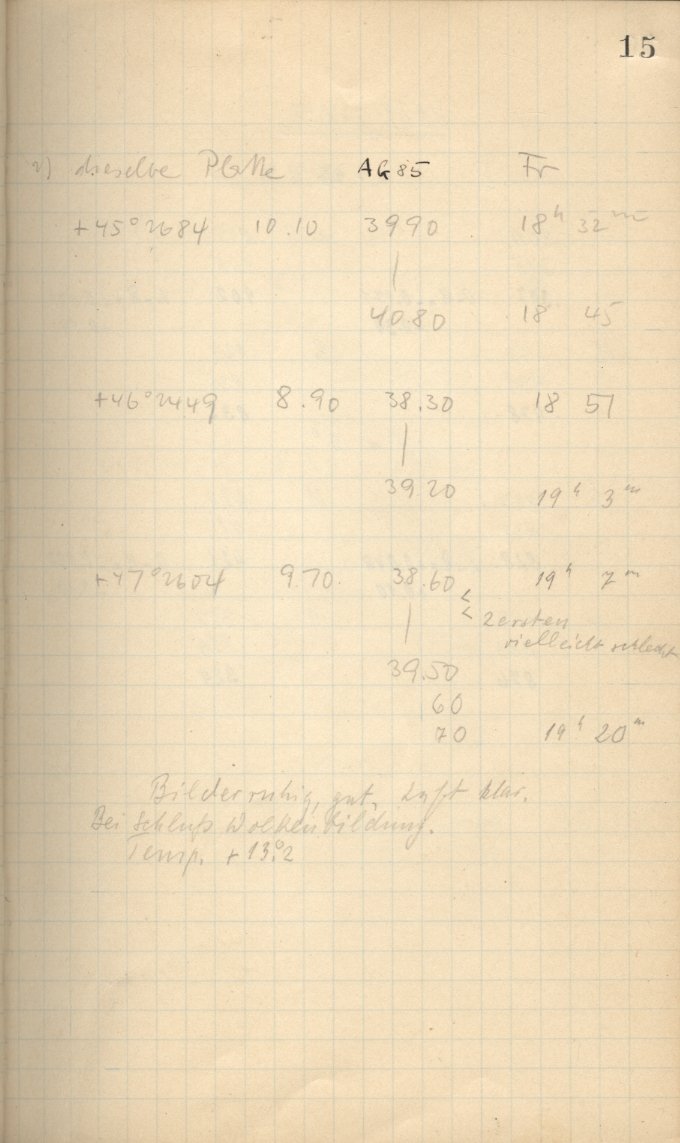 15
2) dieselbe Platte AG 85 Fr
+45° 2684 10.10 39.90 18h 32m
|
40.80 18 45
+46° 2449 8.90 38.30 18 51
|
39.20 19h 3m
+47° 2604 9.70. 38.60 19h 7m
<
< 2 ersten
vielleicht schlecht
|
39.50
60
70 19h 20m
Bilder ruhig, gut, Luft klar.
Bei Schluß Wolkenbildung.
Temp. +13.°2